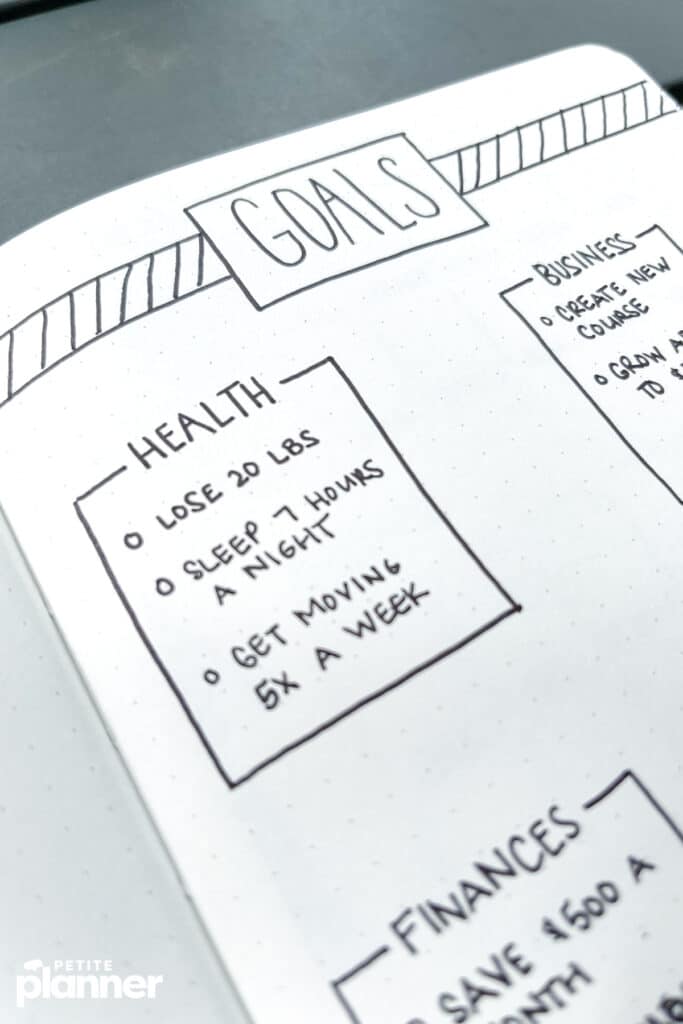 GOALS
HEALTH
o LOSE 20 LBS
o SLEEP 7 HOURS
A NIGHT
o GET MOVING
5X A WEEK
BUSINESS
o CREATE NEW
COURSE
o GROW
TO
FINANCES
SAVE $500 A
PETITE
planner